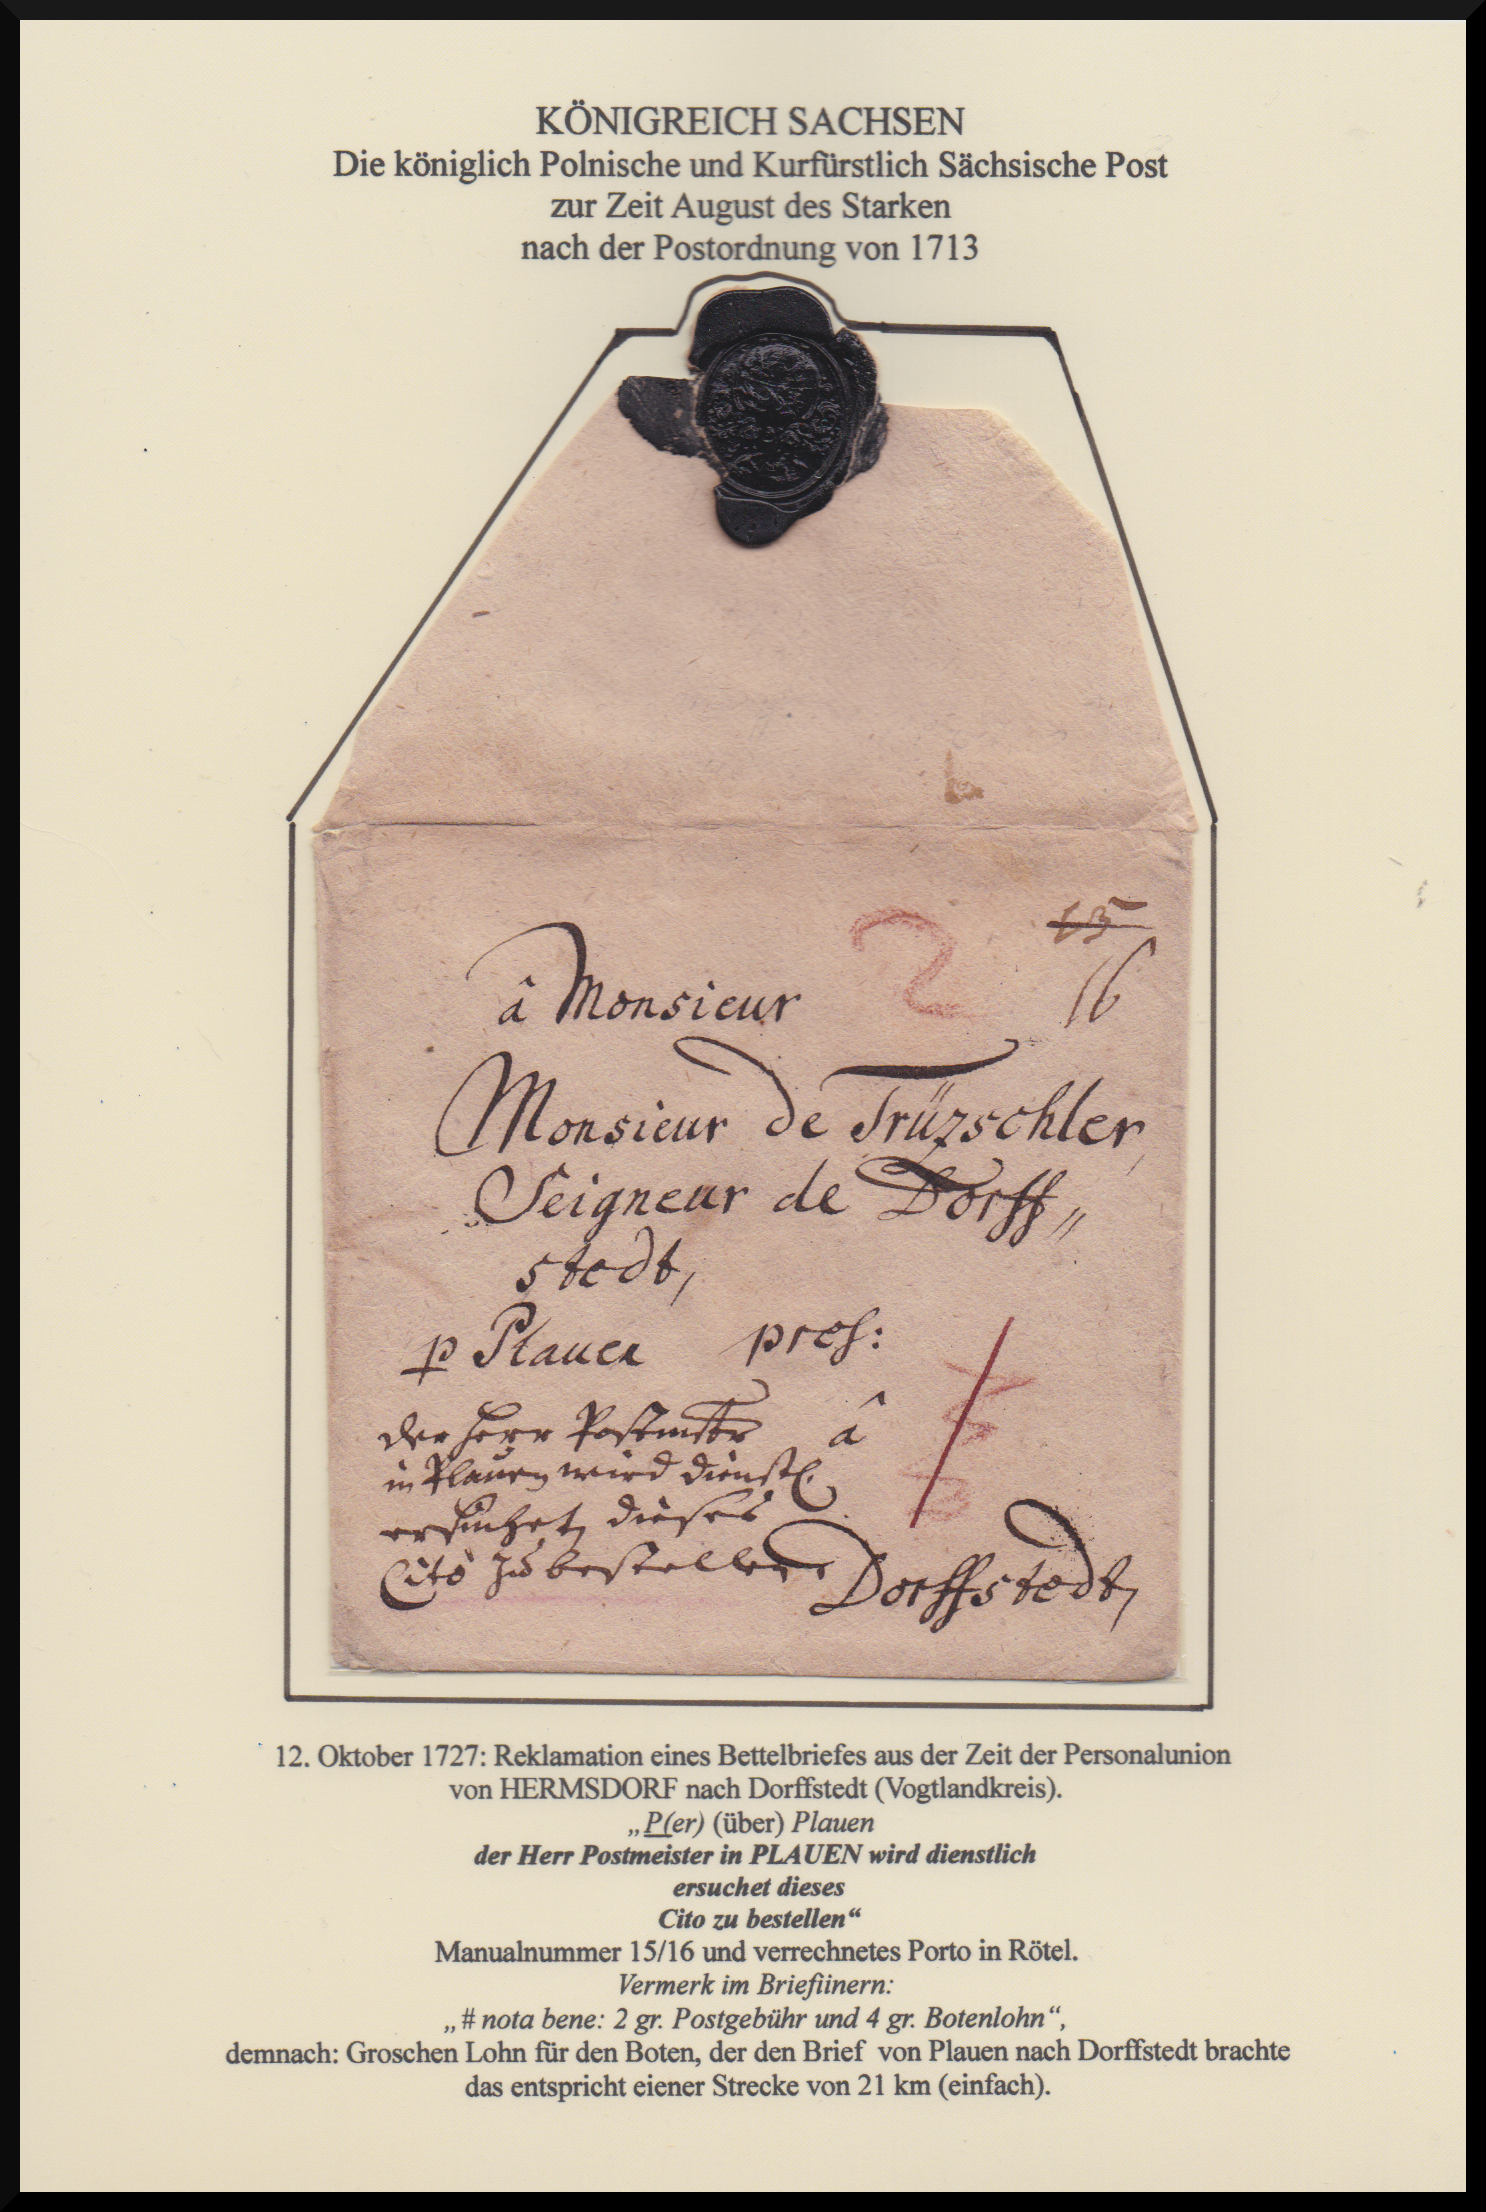 KÖNIGREICH SACHSEN
Die königlich Polnische und Kurfürstlich Sächsische Post
zur Zeit August des Starken
nach der Postordnung von 1713
15
2
16
â Monsieur
Monsieur de Trüzschler,
Seigneur de Dorff„
stedt,
p Plauen pres:
der Herr Postmstr â
in Plauen wird dienstl.
ersuchet, dieses
Cito zu bestellen
Dorffstedt,
12. Oktober 1727: Reklamation eines Bettelbriefes aus der Zeit der Personalunion
von HERMSDORF nach Dorffstedt (Vogtlandkreis).
„P(er) (über) Plauen
der Herr Postmeister in PLAUEN wird dienstlich
ersuchet dieses
Cito zu bestellen“
Manualnummer 15/16 und verrechnetes Porto in Rötel.
Vermerk im Briefiinern:
„# nota bene: 2 gr. Postgebühr und 4 gr. Botenlohn“,
demnach: Groschen Lohn für den Boten, der den Brief von Plauen nach Dorffstedt brachte
das entspricht eiener Strecke von 21 km (einfach).